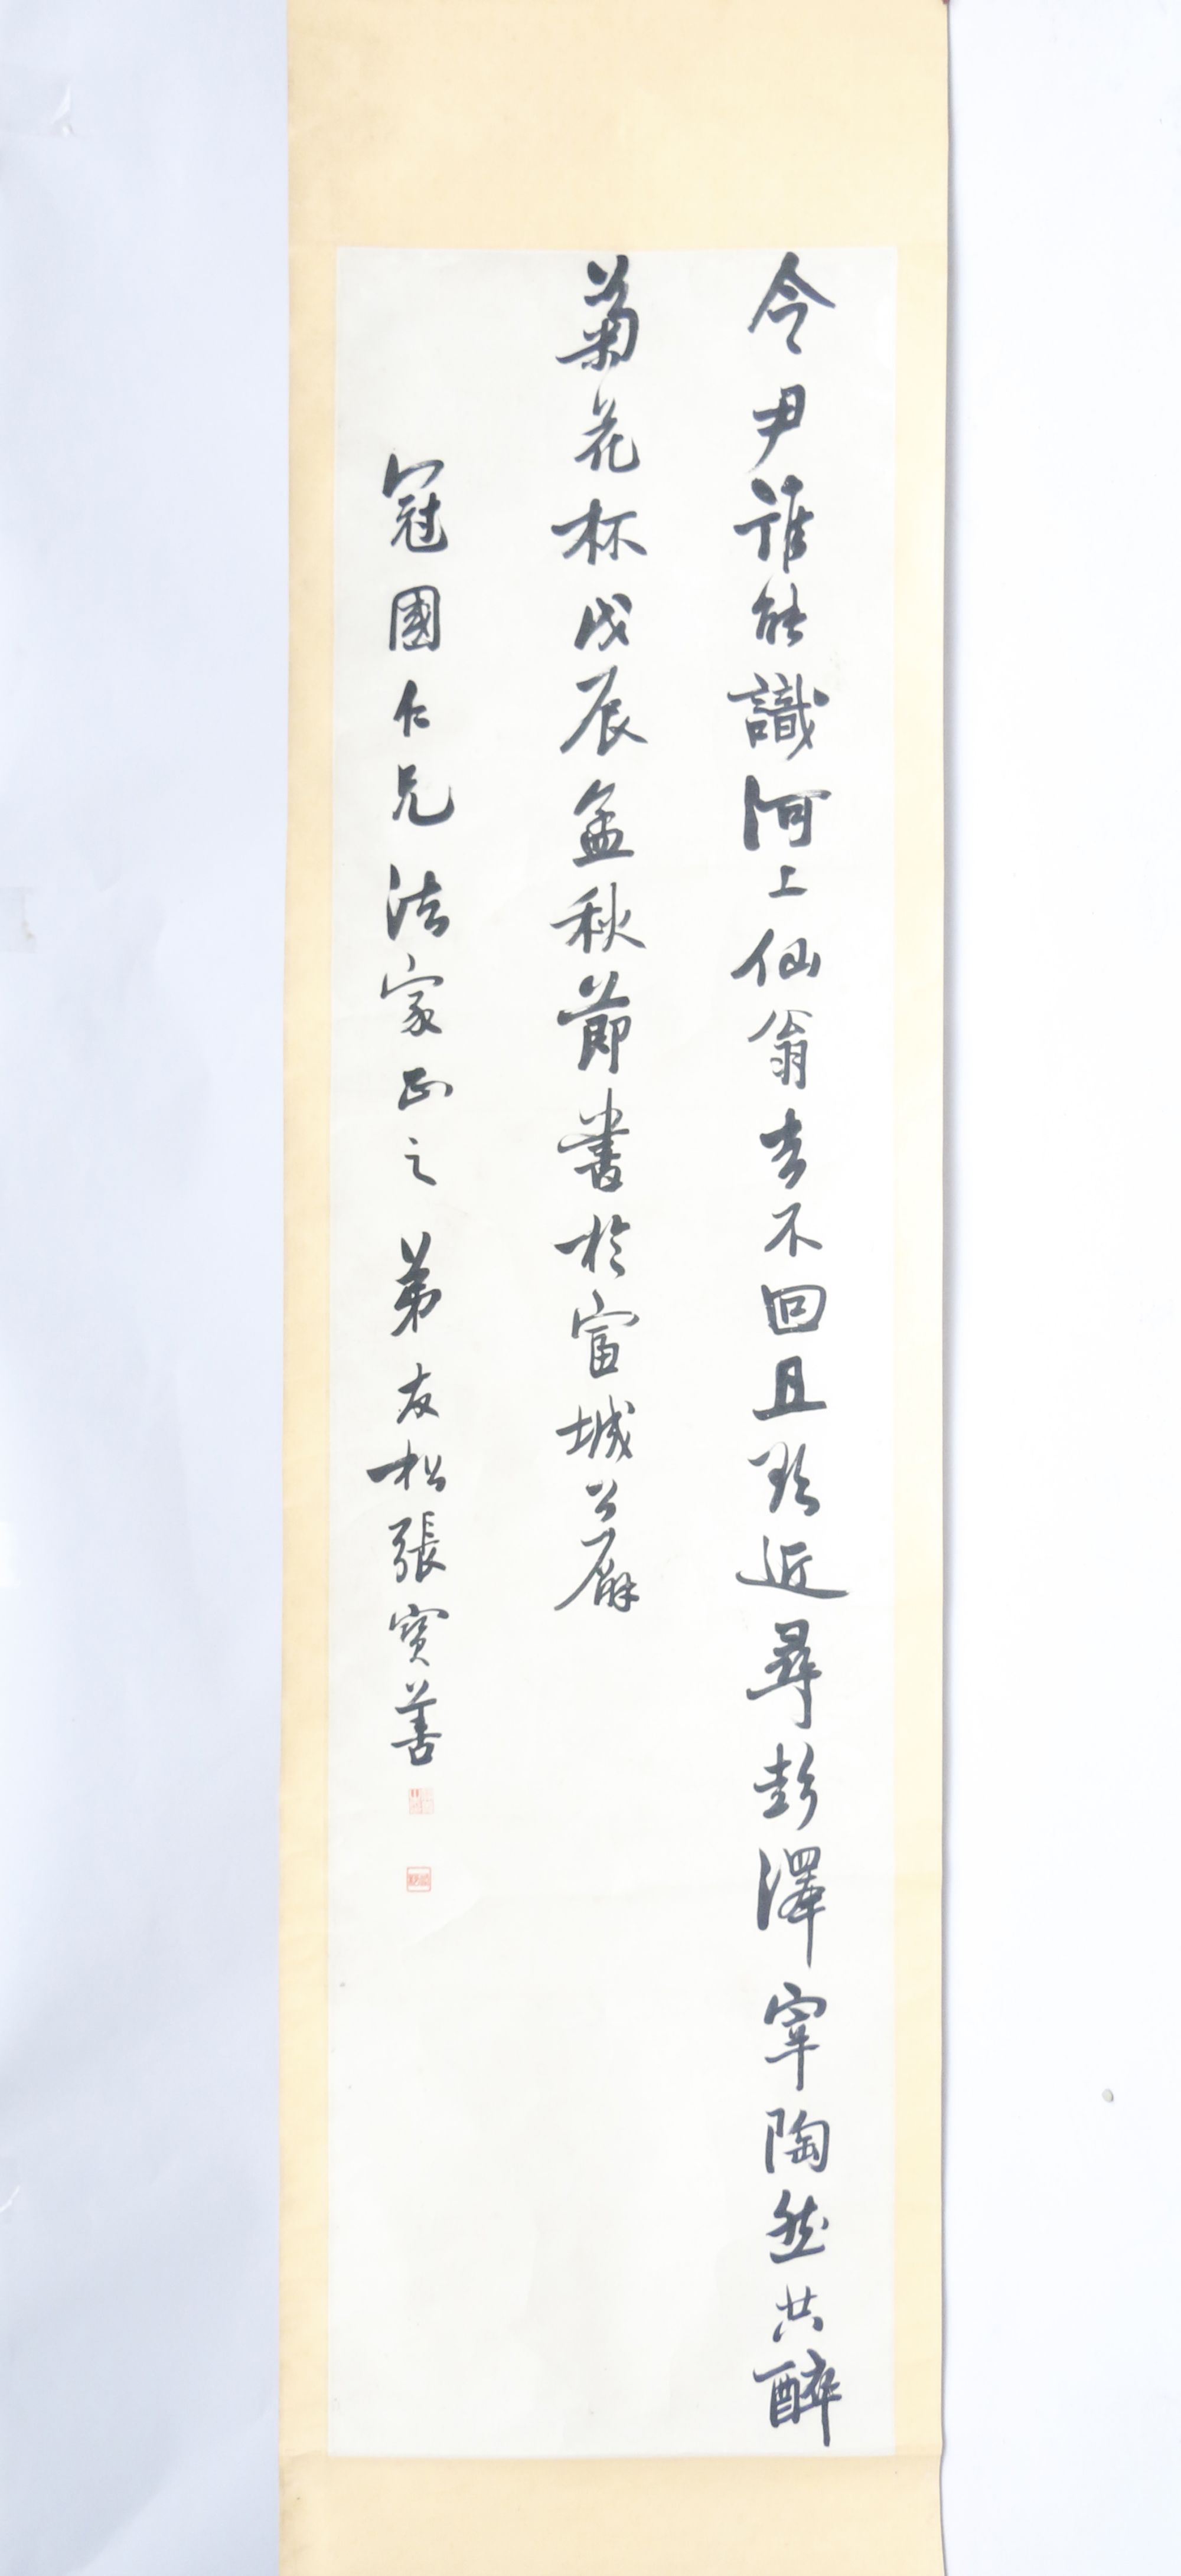 令尹誰能識河上仙翁去不回且欲近尋彭澤宰陶然共醉
菊花杯戊辰孟秋節書於富城公廨
冠國仁兄法家正之弟友松張寶善